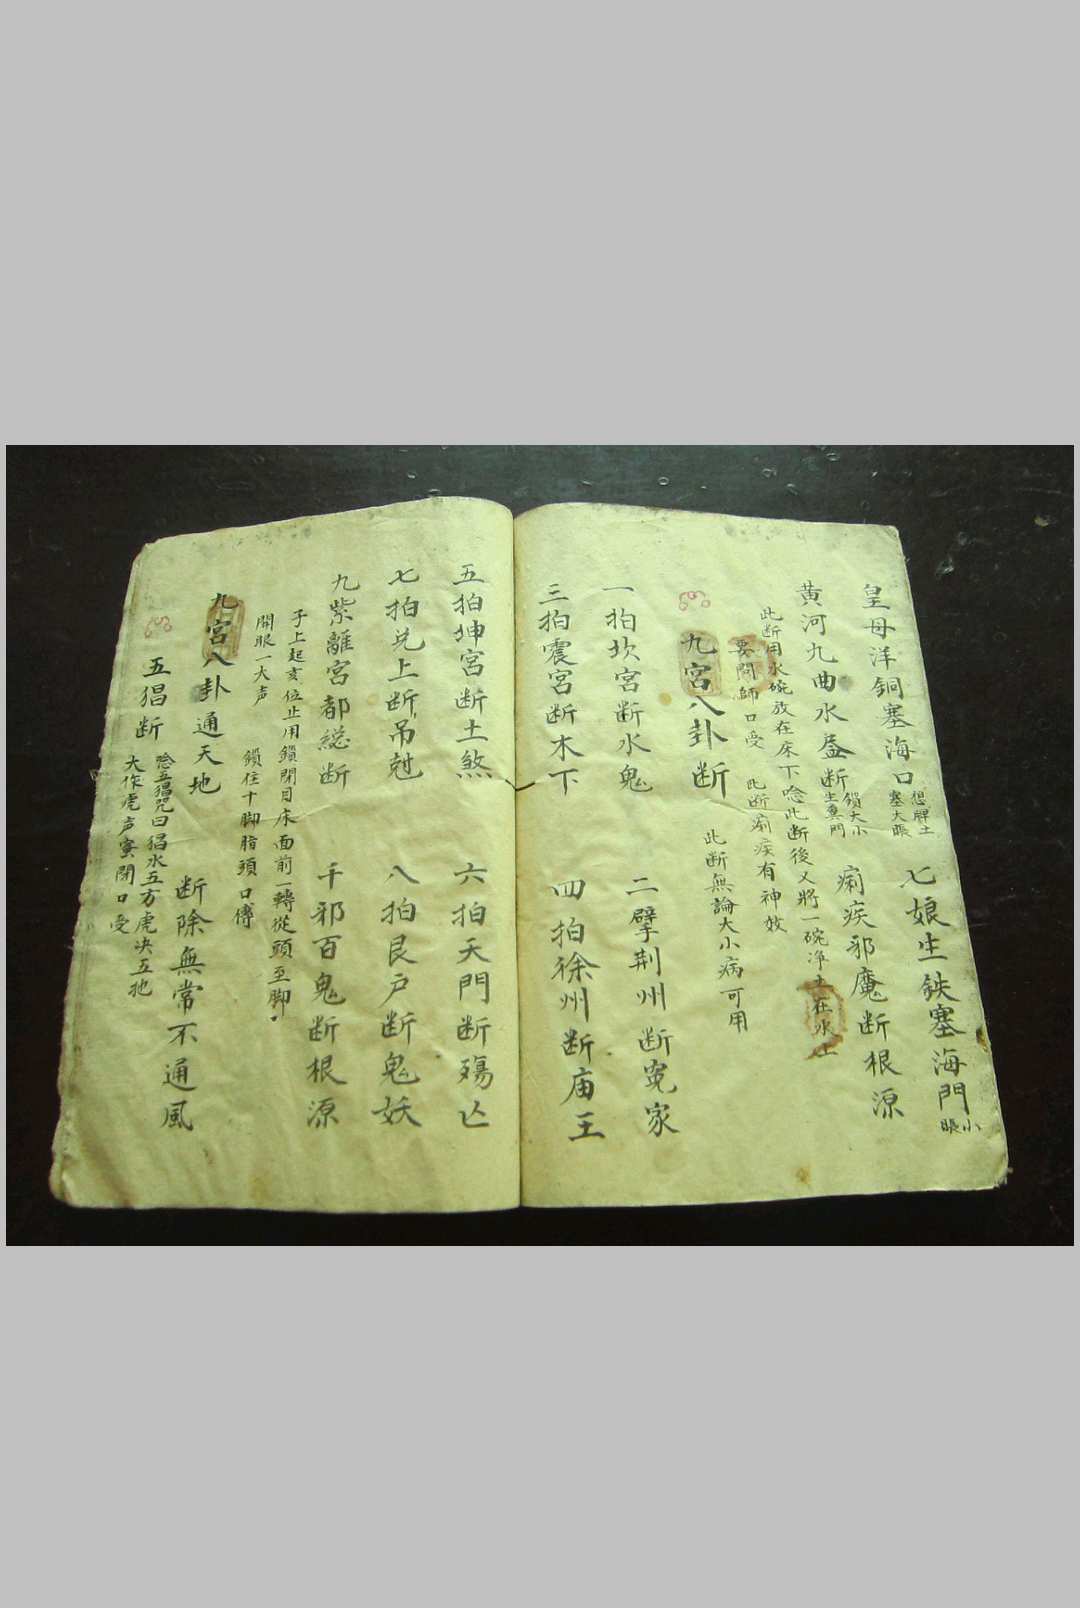 皇母洋銅塞海口 想歸土塞大脹 七娘生鉄塞海門 小脹
黄河九曲水盡断 鎖大小生糞門 痢疾邪魔断根源
此断用水碗放在床下唸此断後又將一碗净土在水上
要問師口受 此断痢疾有神效
九宮八卦断 此断無論大小病可用
一拍坎宮断水鬼 二擘荆州断寃家
三拍震宮断木下 四拍徐州断庙王
五拍坤宮断土煞 六拍天門断殤亡
七拍兑上断吊尅 八拍艮户断鬼妖
九紫離宮都総断 千邪百鬼断根源
子上起亥位止用鎖閉目床面前一轉從頭至脚
開眼一大声 鎖住十脚脂頭口傳
九宮八卦通天地 断除無常不通風
五猖断 唸五猖咒曰猖水五方虎决五地
大作虎声寳閉口受